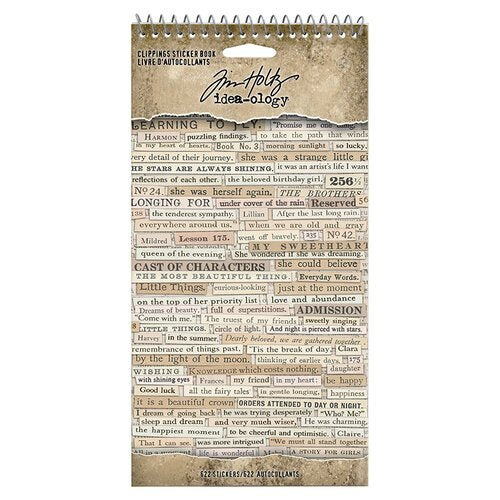 CLIPPINGS STICKER BOOK
LIVRE D'AUTOCOLLANTS
Tim Holtz
idea-ology
LEARNING TO FLY. "Promise me one
HARMON puzzling findings. to take the path that winds
in my heart of hearts. Book No. 3. morning sunlight so lucky.
very detail of their journey. she was a strange little g
THE STARS ARE ALWAYS SHINING. it was an artist's life I want
reflections of each other. the beloved birthday girl. 256½
No 24. she was herself again. THE BROTHERS
LONGING FOR under cover of the rain. Reserved
138 the tenderest sympathy. Lillian After the last long rain.
everywhere around us. when we are old and gray
Mildred Lesson 175. went off bravely. 235 No 42.
MY SWEETHEART
queen of the evening. She wondered if she was dreaming.
CAST OF CHARACTERS she could believe
THE MOST BEAUTIFUL THING. Everyday Words.
Little Things. curious-looking just at the moment
on the top of her priority list love and abundance
Dreams of beauty. full of superstitions. ADMISSION
"Come with me." The trust of my friends sweetly singing
LITTLE THINGS. circle of light. And night is pierced with stars.
Harvey in the summer. Dearly beloved, we are gathered together
remembrance of things past. 'Tis the break of day. Clara
by the light of the moon. thinking of earlier days. 175
WISHING KNOWLEDGE which costs nothing. daughter
with shining eyes Frances my friend in my heart: be happy
Good luck all the fairy tales in gentle longing, happiness
it is a beautiful crown ORDERS ATTENDED TO DAY OR NIGHT.
I dream of going back he was trying desperately "Who? Me?"
sleep and dream and very much wiser, He was charming.
the happiest moment to be cheerful and optimistic. Claire,
That I can see. was more intrigued "We must all stand together
interested. MOTHER A STORY FOR GIRLS
622 STICKERS/622 AUTOCOLLANTS